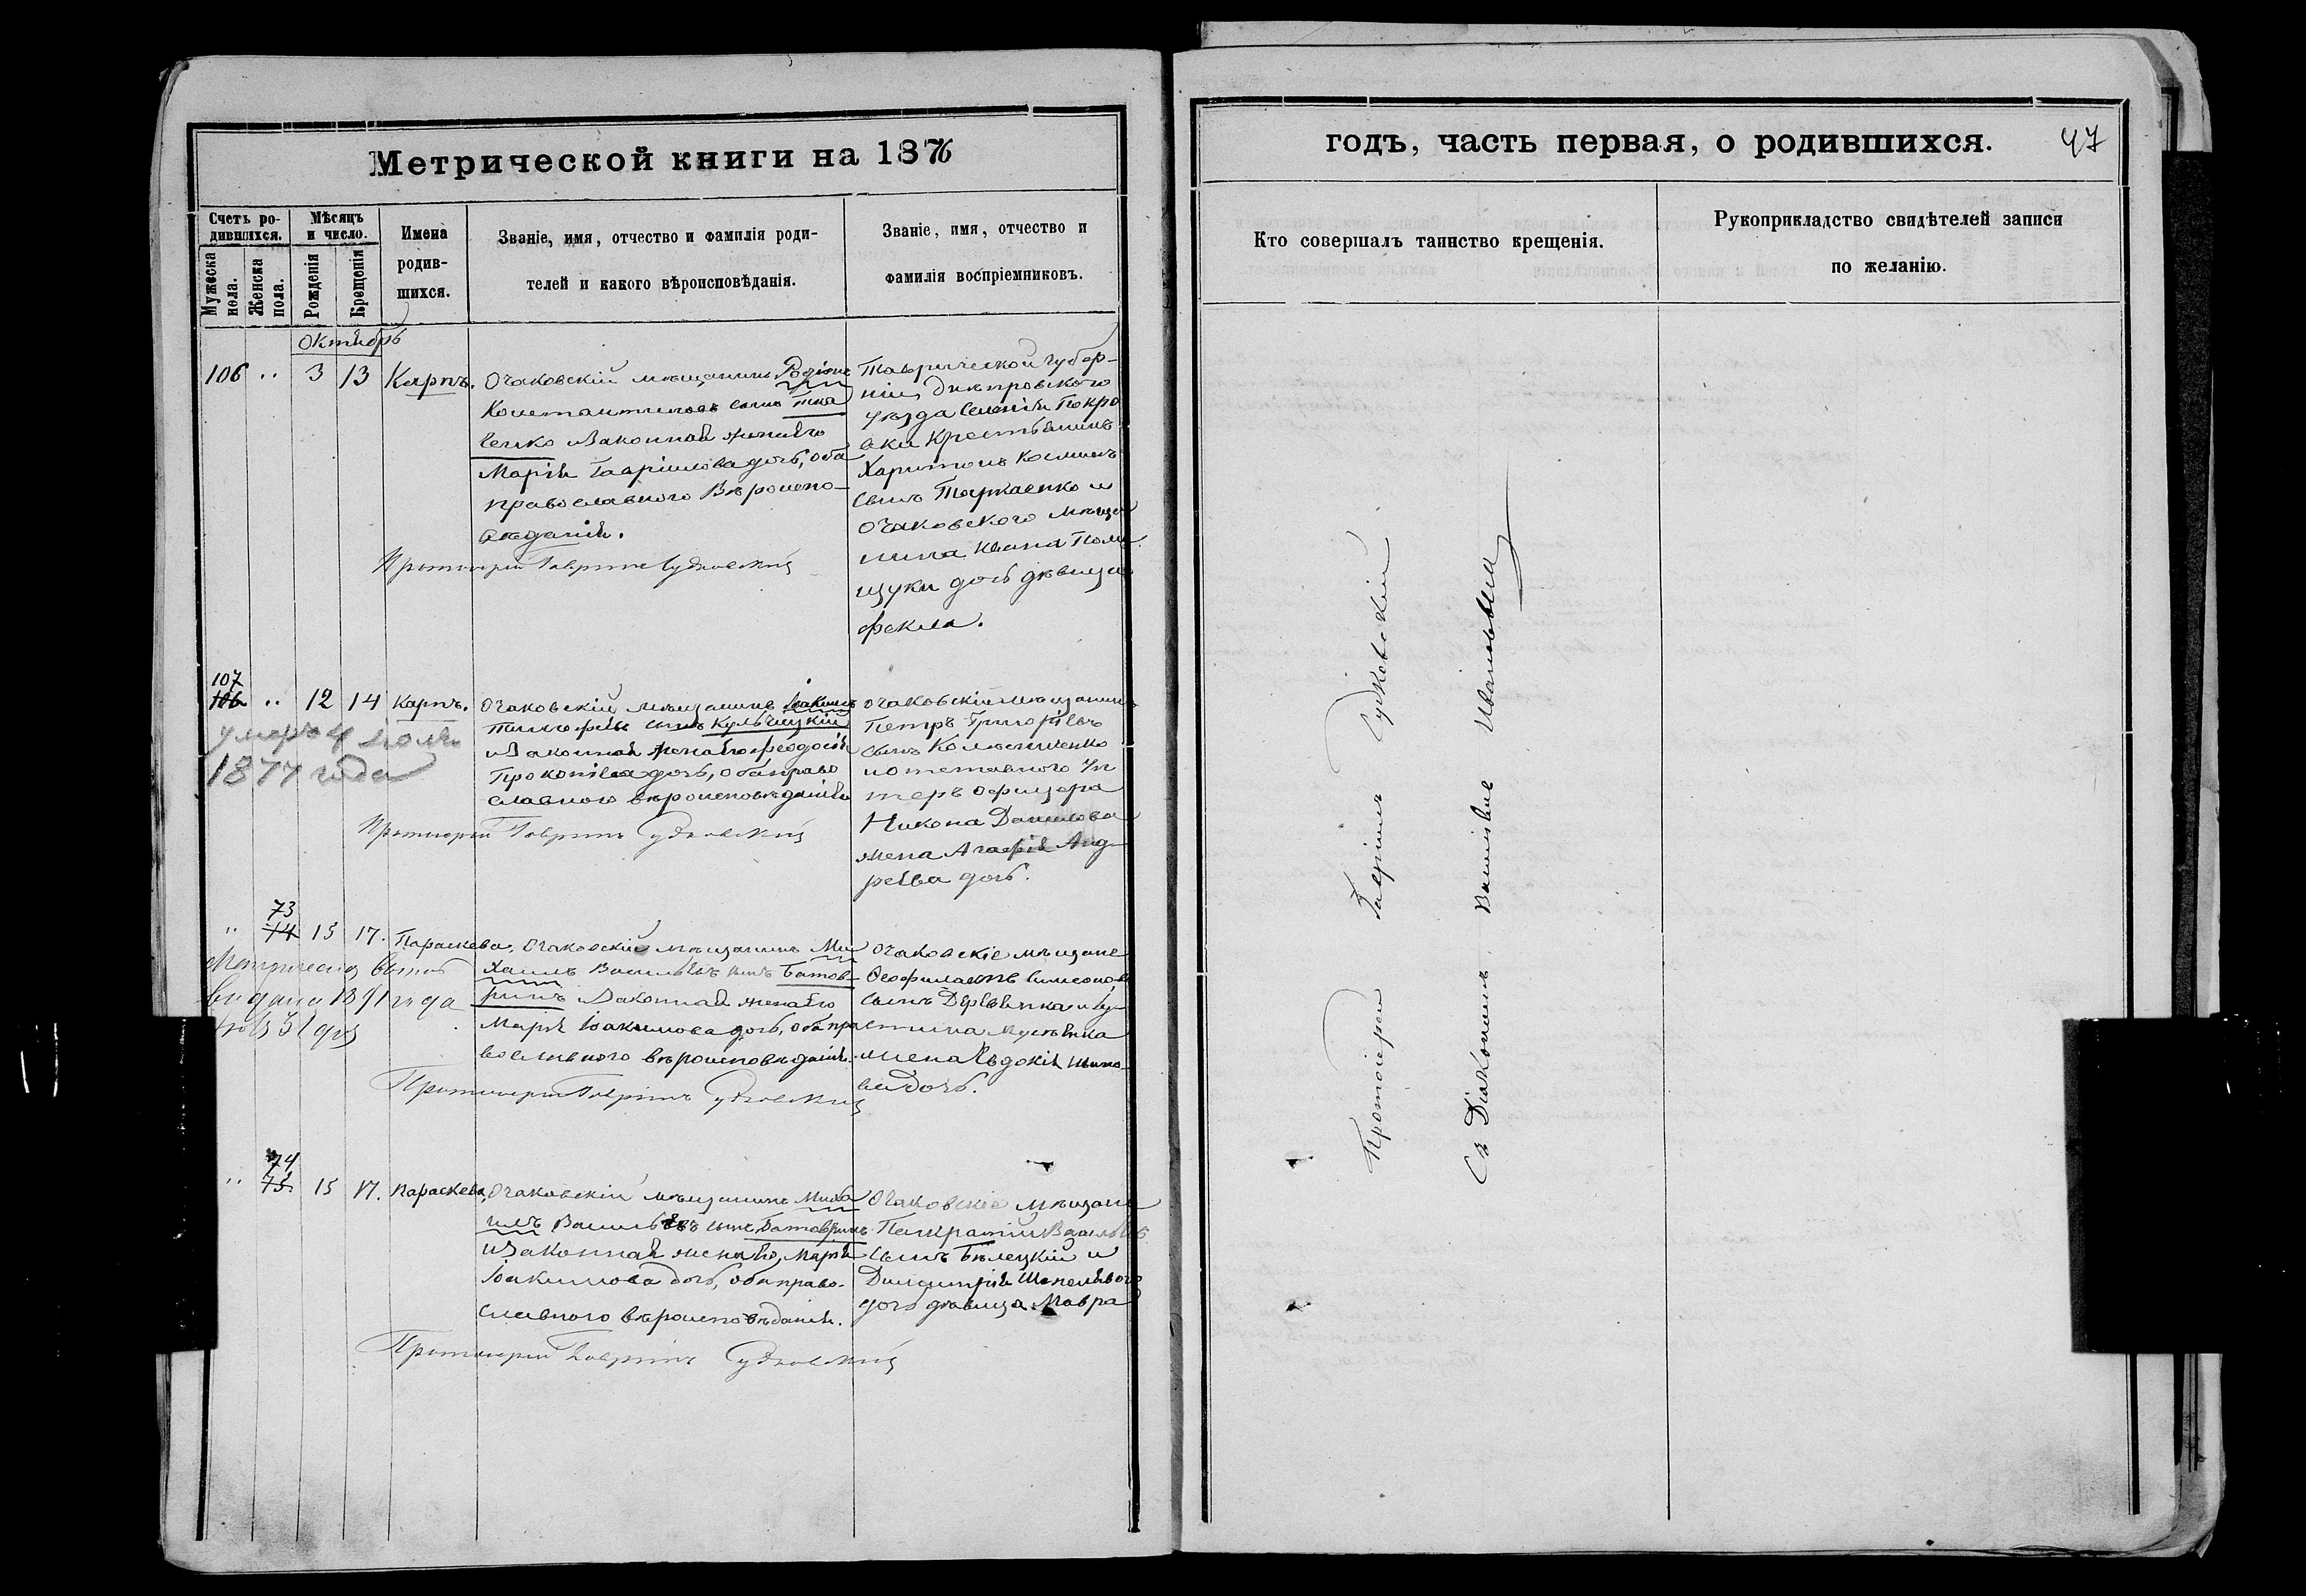 Метрической книги на 1876
годъ, часть первая, о родившихся.
47
Счетъ ро-
дившихся.
Мужеска
пола.
Женска
пола.
Мѣсяцъ
и число.
Рожденія
Крещенія
Имена
родив-
шихся.
Званіе, имя, отчество и фамилія роди-
телей и какого вѣроисповѣданія.
Званіе, имя, отчество и
фамилія воспріемниковъ.
Кто совершалъ таинство крещенія.
Рукоприкладство свидѣтелей записи
по желанію.
Октябрь
106 .. 3 13 Карпъ.
Очаковскій мѣщанинъ Родіонъ
Константиновъ сынъ Тка
ченко и законная жена его
Марія Гавріилова дочь, оба
православнаго вѣроиспо-
вѣданія.
Протоіерей Гавріилъ Судковскій
Таврической губер-
ніи, днѣпровского
уѣзда селенія Покро
вки крестьянинъ
Харитонъ Косминъ
сынъ и
очаковского мѣща
нина Ивана
щуки дочь дѣвица
Фекла.
107
106 .. 12 14 Карпъ.
умеръ 4
1877 года
Очаковскій мѣщанинъ Іоакимъ
Тимофѣевъ сынъ Кульчицкій
и законная жена его Феодосія
Прокопіева дочь, оба право
славного вѣроисповѣданія
Протоіерей Гавріилъ Судковскій
очаковскій мѣщанинъ
Петръ Григорьевъ
сынъ Колесниченко
и отставного Ун
теръ офицера
Никона Данилова
жена Агафія Анд-
реева дочь.
73
.. 74 15 17. Параскева.
Метрическая выпись
выдана 1891 года
Очаковскій мѣщанинъ Ми
хаилъ Васильевъ сынъ Батов-
ринъ и законная жена его
Марія Іоакимова дочь, оба пра
вославного вѣроисповѣданія.
Протоіерей Гавріилъ Судковскій
очаковскіе мѣщане
Феофилактъ Симеоновъ
сынъ
жена Евдокія
ва дочь.
74
.. 75 15 17. Параскева,
Очаковскій мѣщанинъ Миха
илъ Васильевъ сынъ Батовринъ
и законная жена его, Марія
Іоакимова дочь, оба право-
славного вѣроисповѣданія.
Протоіерей Гавріилъ Судковскій
Очаковскіе мѣщане
Панкратій Васильевъ
сынъ Бѣлецкій и
Димитрія
дочь дѣвица Мавра
Протоіерей Гавріилъ Судковскій
Съ Діакономъ Иваномъ